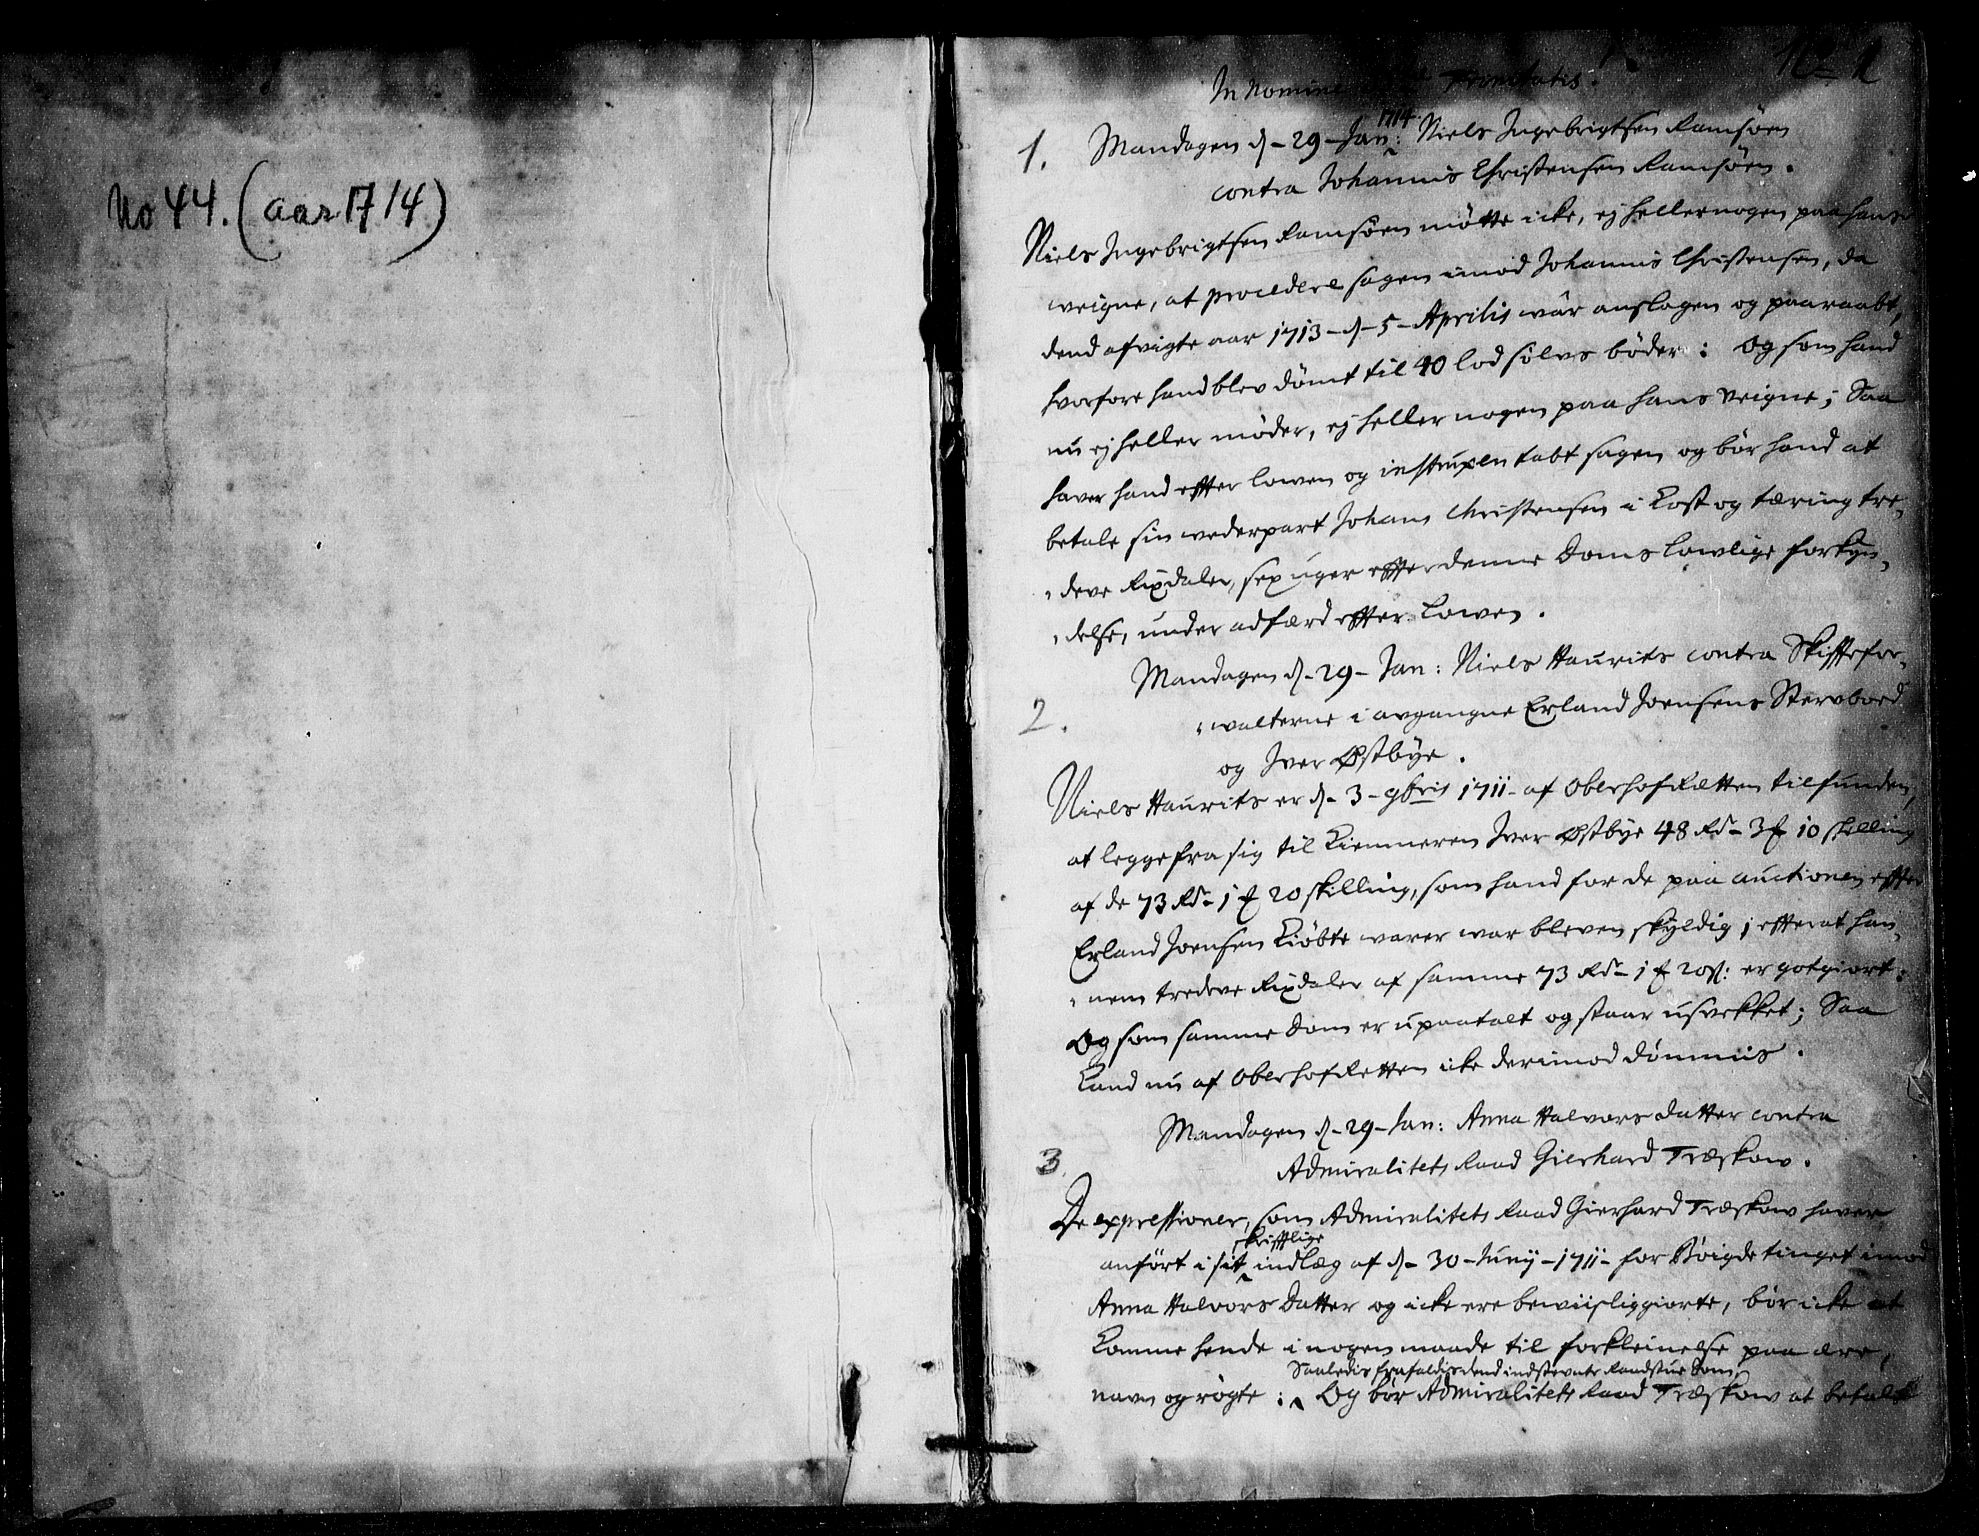 No 44. (aar 1714)
1
In Nomine Trinitatis.
1. Mandagen d. 29 Jan: 1714 Niels Ingebrigtsen Ramsøen
contra Johannis Christensen Ramsøen.
Niels Ingebrigtsen Ramsøen møtte icke, ej heller nogen paa hans
veigne, at procedere sagen imod Johannis Christensen, da
dend afvigte aar 1713 d. 5 Aprilis wår anslagen og paaraabt,
hvorfore hand blev dømt til 40 lod sølvs bøder: Og som hand
nu ej heller møder, ej heller nogen paa hans veigne; Saa
haver hand effter lowen og instruxen tabt sagen og bør hand at
betale sin wederpart Johans Christensen i Kost og tæring tre,
,deve Rixdaler, sex uger effter denne Doms lowlige forkyn,
,delse, under adfærd effter Lowen.
2. Mandagen d. 29 Jan: Niels Haurits contra Skifftefor,
,walterne i avgangne Erland Joensens Stervboed
og Iver Østbye.
Niels Haurits er d. 3 9bris 1711 af OberhofRætten tilfunden,
at legge fra sig til Kiemneren Iver Østbye 48 Rd 3 10 skilling
af de 73 Rd 1 20 skilling, som hand for de paa auctionen effter
Erland Joensen Kiøbte warer war bleven skyldig; effter at han,
,nem tredeve Rixdaler af samme 73 Rd 1 20 s: er gotgiort:
Og som samme Dom er upaatalt og staar usvekket; Saa
Kand nu af OberhofRetten icke derimod dømmis.
3. Mandagen d. 29 Jan: Anna Halvors Datter contra
Admiralitets Raad Gierhard Træskow.
De expressioner, som Admiralitets Raad Gierhard Træskow haver
skrifftlige
anført i sit indlæg af d. 30 Junij 1711 for Bøigdetinget imod
Anna Halvors Datter og icke ere beviisliggiorte, bør icke at
Komme hende i nogen maade til forkleinelse paa ære,
Saaledis frafaldis dend indstevnte Raadstue Dom
navn og røgte: Og bør Admiralitets Raad Træskow at betale